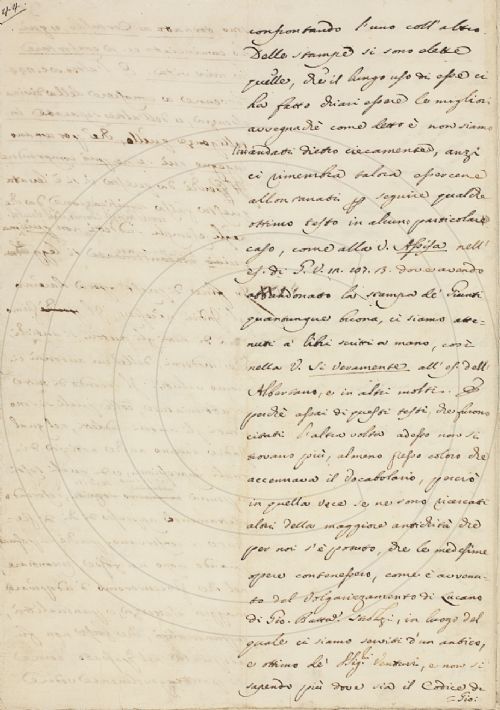 44.
confrontando l'uno coll'altro
Delle stampe si sono elette
quelle, che il lungo uso di esse ci
ha fatto chiari essere le migliori
avvegnachè come detto è non siamo
andati dietro ciecamente, anzi
ci rimembra talora essercene
allontanati per seguire qualche
ottimo testo in alcun particolare
caso, come alla V. Assisa nell'
es. di G. V. 12. 107. 3. dove avendo
abbandonato la stampa de' Giunti
quantunque buona, ci siamo atte-
nuti a' libri scritti a mano, così
nella V. Si veramente all'es. dell'
Albertano, e in altri molti. E
perchè assai di questi testi, che furono
citati l'altra volta adesso non si
trovano più, almeno presso coloro che
accennava il Vocabolario, perciò
in quella vece se ne sono ricercati
altri della maggiore antichità che
per noi s'è potuto, che le medesime
opere contenessero, come è avvenu-
to del Volgarizzamento di Lucano
di Gio. Batta. in luogo del
quale ci siamo serviti d'un antico,
e ottimo de' Sigi. Venturi, e non si
sapendo più dove sia il Codice di
Gio: